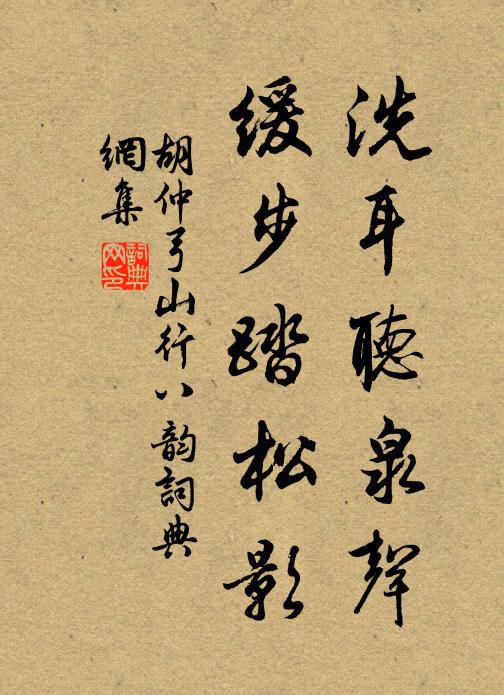 洗耳聽泉聲
緩步踏松影
胡仲弓山行八韵詞典
網集
詞典网印